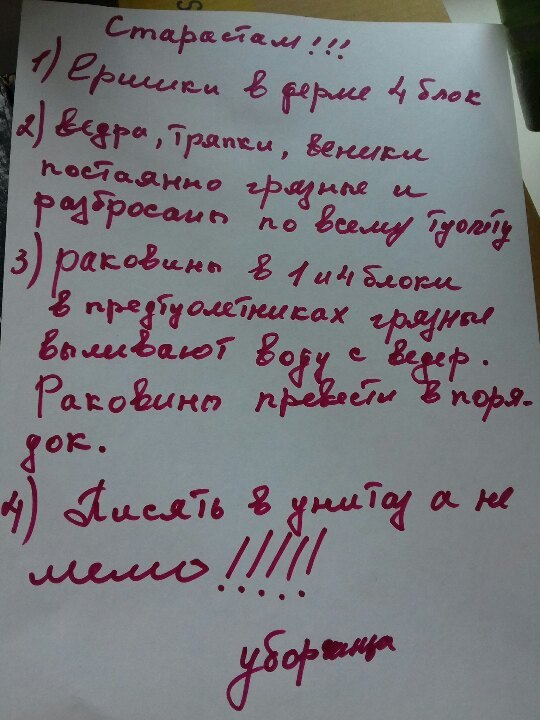 Старастам!!!
1) Ершики в дерме 4 блок
2) ведра, тряпки, веники
постаянно грязные и
разбросаны по всему туолту
3) раковины в 1 и 4 блоки
в предтуолетниках грязные
выливают воду с ведер.
Раковины превести в поря-
док.
4) Писять в унитаз а не
мемо!!!!!
уборчица